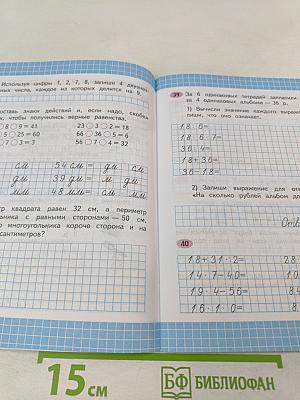 Используя цифры 1, 2, 7, 8, запиши 4
числа, каждое из которых делится на 9.
знаки действий и, если надо, скобки
чтобы получились верные равенства.
8 9 = 41
23 3 2 = 18
5 25 = 60
66 36 5 = 6
7 3 = 3
56 7 2 =
см 54 см = дм см
дм 39 дм = м дм
мм 48 мм = см мм
квадрата равен 32 см, а периметр
с равными сторонами — 50 см.
многоугольника короче сторона и на
сантиметров?
39
За 6 одинаковых тетрадей
за 4 одинаковых альбома — 36 р.
1) Вычисли значение каждого
что оно означает.
18:6=
18:6·7=
36:4=
18+36=
36-18=
2) Запиши выражение для
«На сколько рублей альбом
40
18+31·2=
28
14·7-40=
19·4-56=
8
16·1·0=
8
15 см
БФ БИБЛИОФАН